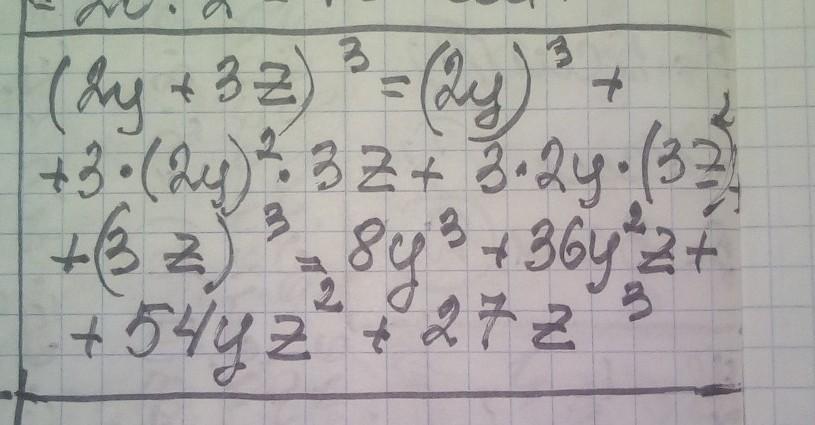 (2y + 3z)³ = (2y)³ +
+ 3 · (2y)² · 3z + 3 · 2y · (3z)² +
+ (3z)³ = 8y³ + 36y²z +
+ 54yz² + 27z³